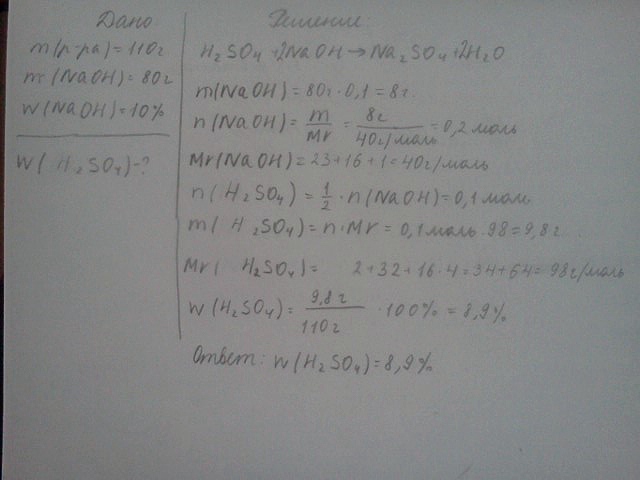 Дано
m(р-ра)=110г
m(NaOH)=80г
w(NaOH)=10%
w(H₂SO₄)-?
Решение
H₂SO₄+2NaOH→Na₂SO₄+2H₂O
m(NaOH)=80г·0,1=8г.
n(NaOH)=m/Mr=8г/40г/моль=0,2моль
Mr(NaOH)=23+16+1=40г/моль
n(H₂SO₄)=1/2·n(NaOH)=0,1моль
m(H₂SO₄)=n·Mr=0,1моль·98=9,8г.
Mr(H₂SO₄)=2+32+16·4=34+64=98г/моль
w(H₂SO₄)=9,8г/110г·100%=8,9%
Ответ: w(H₂SO₄)=8,9%